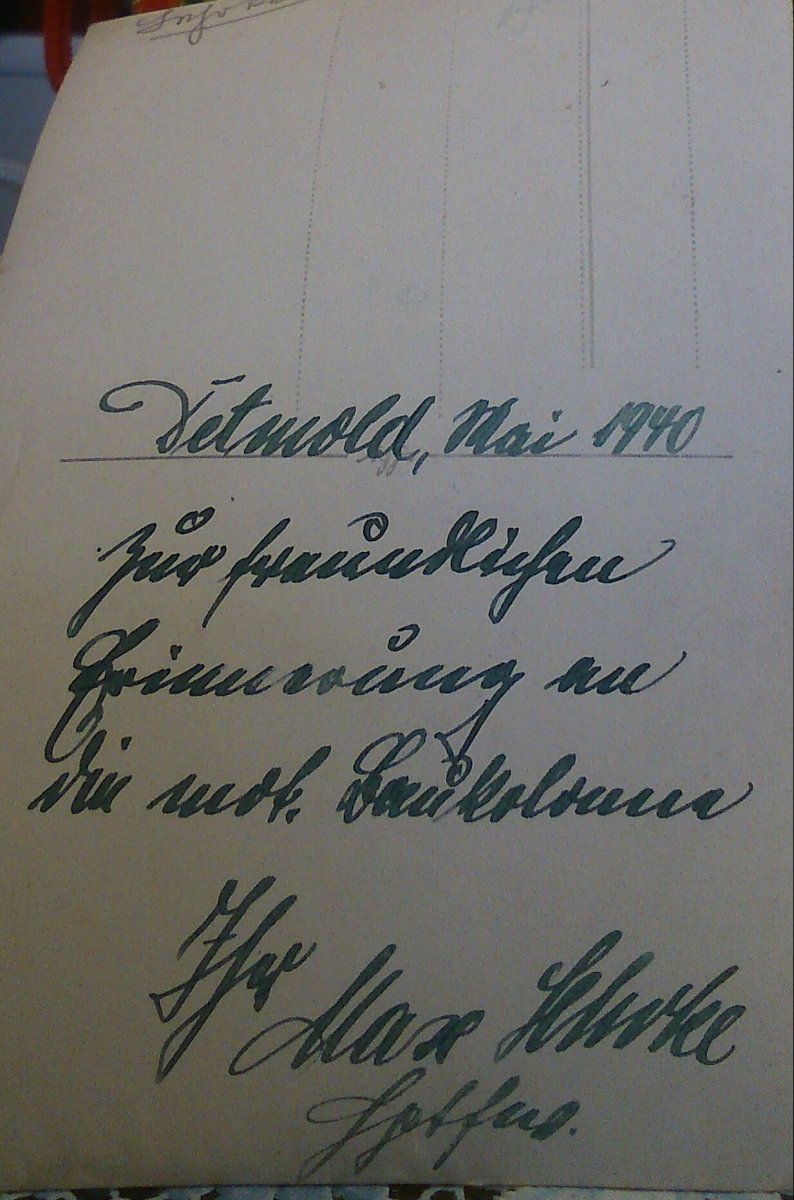 Detmold, Mai 1940
Zur freundlichen
Erinnerung an
die mot. Baukolonne
Ihr
Max
Hptfw.